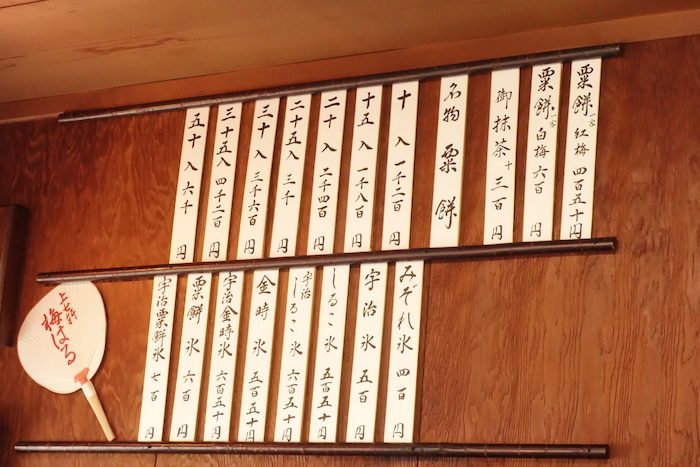 粟餅 一客 紅梅 四百五十円
粟餅 一客 白梅 六百円
御抹茶 十三百円
名物 粟餅
十入 一千二百円
十五入 一千八百円
二十入 二千四百円
二十五入 三千円
三十入 三千六百円
三十五入 四千二百円
五十入 六千円
みぞれ氷 四百円
宇治氷 五百円
しるこ氷 五百五十円
宇治しるこ氷 六百五十円
金時氷 五百五十円
宇治金時氷 六百五十円
粟餅氷 六百円
宇治粟餅氷 七百円
上七軒
梅はる